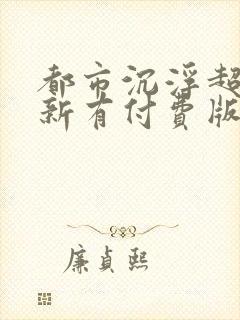 都市沉浮超
新有付费版
廉贞熙